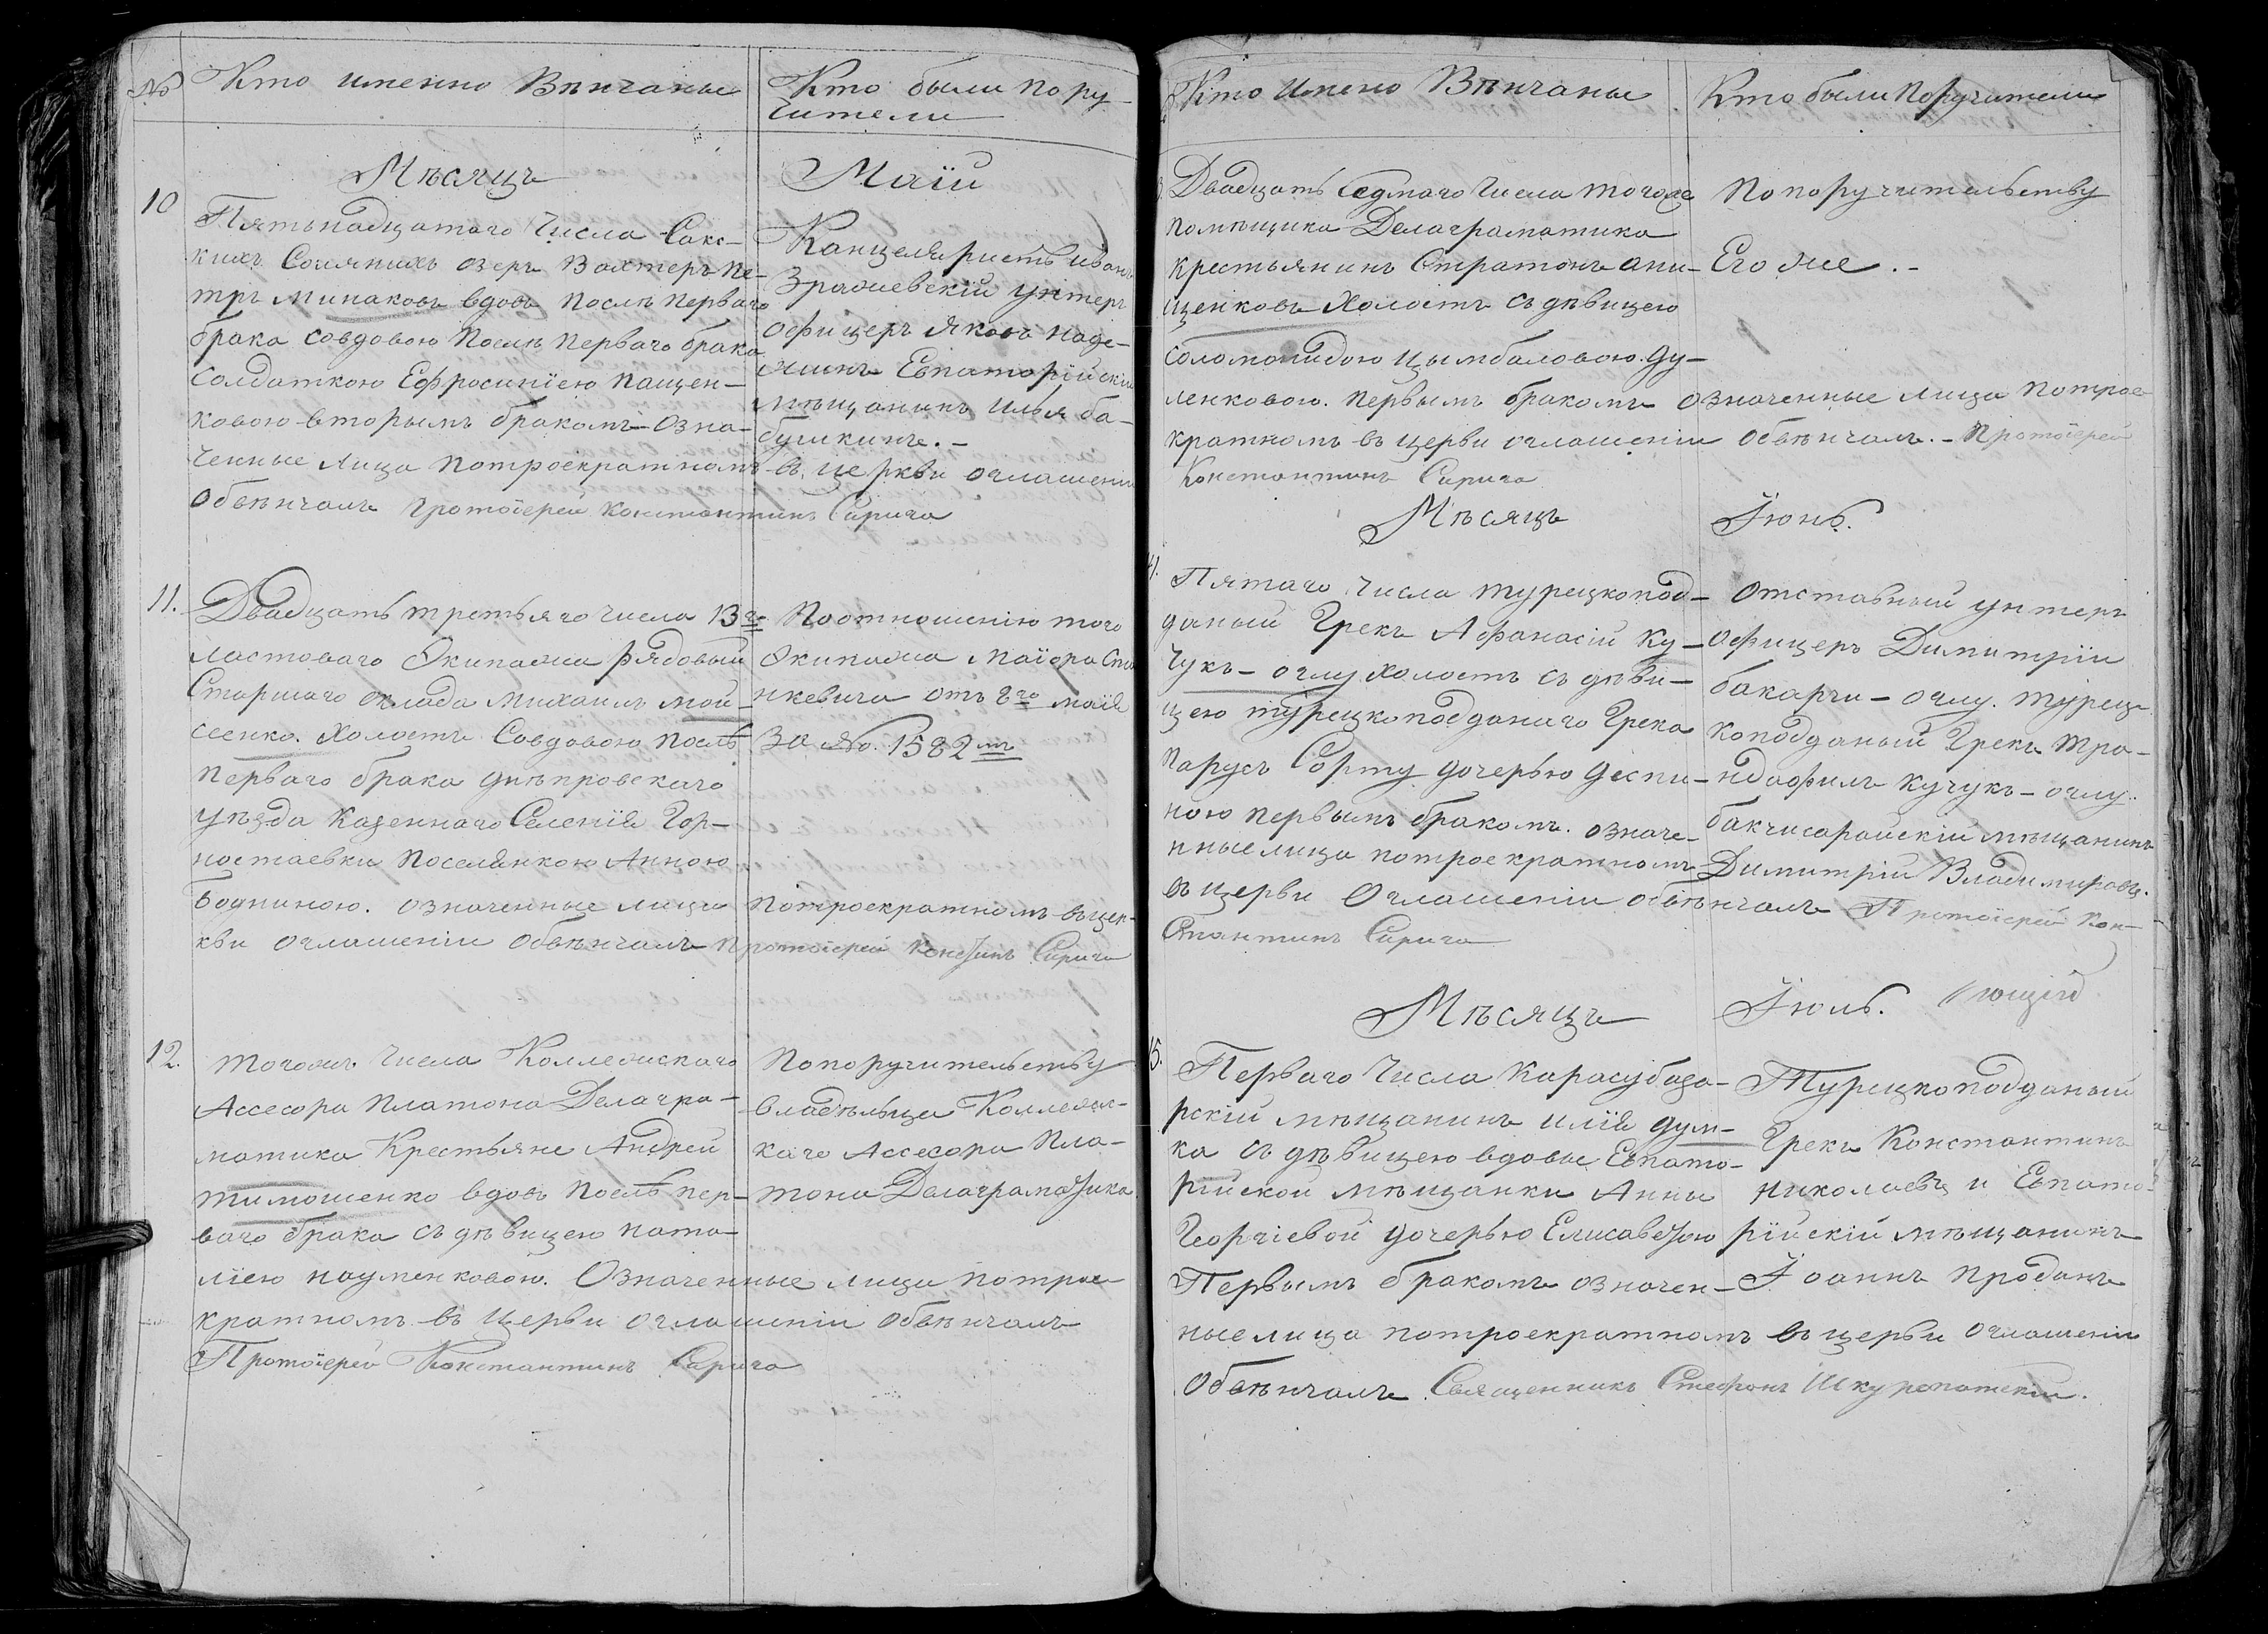 № Кто именно Вѣнчаны
Кто были пору-
чители
Мѣсяцъ
Маїй
10
Пятьнадцатаго Числа Сакс-
кихъ Соляныхъ озеръ Вахтеръ Пе-
тръ Минаковъ вдовъ послѣ перваго
брака совдовою послѣ перваго брака
солдаткою Ефросинїею Пащен-
ковою вторымъ бракомъ Озна-
ченные лица потроекратномъ въ церкви оглашенїи
Обвѣнчалъ Протоїерей Константинъ Сарига
Канцеляристъ Иванъ
унтеръ
офицеръ Яковъ Наде-
жинъ Евпаторїйскїй
мѣщанинъ Илья ба-
бушкинъ.-
11.
Двадцать третьяго числа 13го
ластоваго Экипажа рядовый
Старшаго оклада Михаилъ Мои-
сеенко. Холостъ Совдовою послѣ
перваго брака днѣпровскаго
уѣзда казеннаго Селенїя Гор-
ностаевки поселянкою Анною
означенные лица потроекратномъ въцер-
кви оглашенїи Обвѣнчалъ Протоїерей Конс Сарига
Поотношенїю того
Экипажа Маїора
нкевича отъ 8го маїя
За №. 1582мъ
12.
Тогожъ Числа Коллежскаго
Ассесора Платона Делагра-
матика Крестьяне Андрей
Тимошенко вдовъ послѣ пер-
ваго брака съ дѣвицею ната-
лїею науменковою. Означенные лица потрое
кратномъ въ Церкви оглашенїи обвѣнчалъ
Протоїерей Константинъ Сарига
Попоручительству
владѣльца Коллежс-
каго Ассесора Пла-
тона Делаграматика
Кто Имено Вѣнчаны
Кто были Поручители
Двадцать Седмаго Числа тогоже
помѣщика Делаграматика
крестьянинъ Стратонъ Они-
щенковъ Холостъ съ дѣвицею
соломонидою Цымбаловою Ду-
ленковою. Первымъ бракомъ означенные лица потрое
кратномъ въ церви оглашенїи Обвѣнчалъ.- Протоїерей
Константинъ Сарига
По поручительству
Его же.-
Мѣсяцъ
Їюнь.
Пятаго Числа турецкопод-
даный Грекъ Афанасїй Ку-
чукъ-оглу холостъ съ дѣви-
цею турецкоподданаго Грека
Парусъ дочерью Деспи-
ною первымъ бракомъ. Означе-
нные лица потроекратномъ
въ церви Оглашенїи обвѣнчалъ Протоїерей Кон-
стантинъ Сарига
Отставный унтеръ
Офицеръ Димитрїй
бакарчи-оглу. Турец-
коподданый Грекъ Тра-
ндафилъ Кучукъ-оглу.
бакчисарайскїй мѣщанинъ
Димитрїй Владимировъ.
Мѣсяцъ
Їюль.
15.
Перваго Числа Карасубаза-
рскїй мѣщанинъ Илїя Дум-
ка съ дѣвицею вдовы Евпато-
рїйской мѣщанки Анны
Георгїевой дочерью Елисаветою
Первымъ бракомъ означен-
ные лица потроекратномъ въ церви оглашенїи
Обвѣнчалъ Священникъ Стефанъ Шкуропатскїй.
Турецкоподданый
Грекъ Константинъ
Николаевъ и Евпато-
рїйскїй мѣщанинъ
Їоаннъ Проданъ